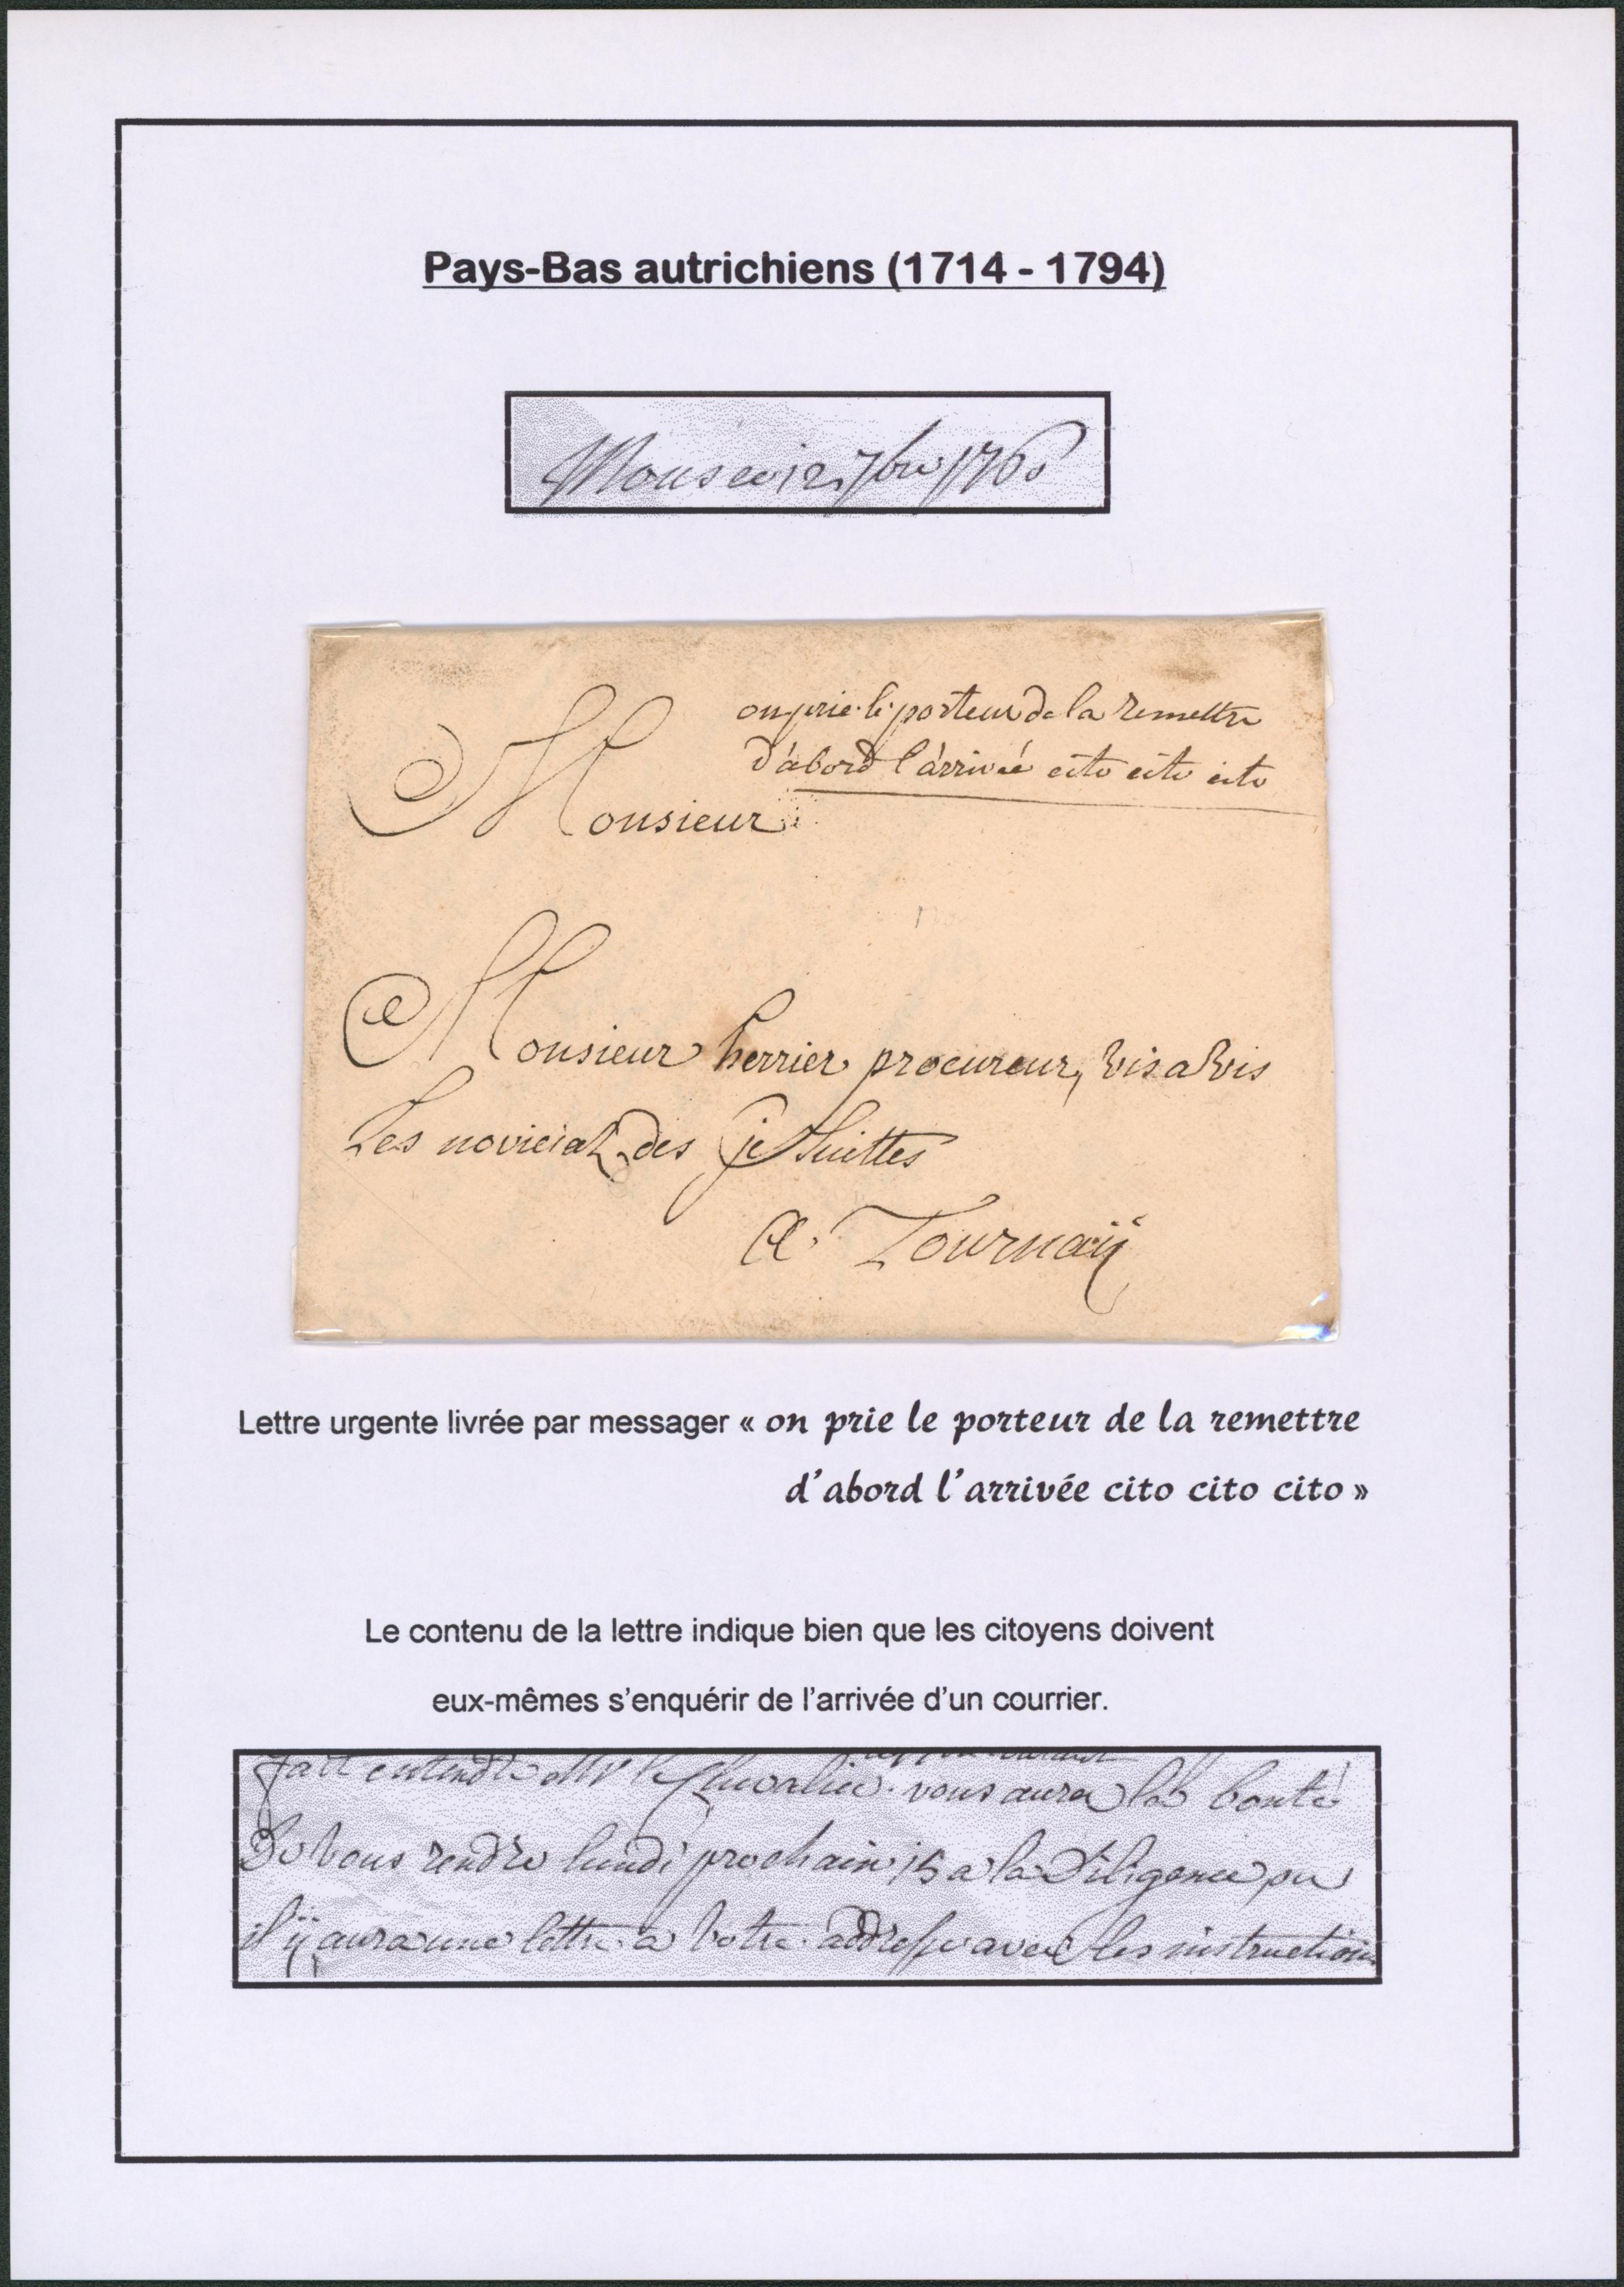 Pays-Bas autrichiens (1714 - 1794)
7bre 1760
on prie le porteur de la remettre
d'abord l'arrivée cito cito cito
Monsieur
Monsieur herrier procureur, vis a vis
Les noviciat des jesuittes
a Tournaÿ
Lettre urgente livrée par messager « on prie le porteur de la remettre
d'abord l'arrivée cito cito cito »
Le contenu de la lettre indique bien que les citoyens doivent
eux-mêmes s'enquérir de l'arrivée d'un courrier.
fait entendre vous aurez la bonté
De vous rendre lundi prochain 15 a la Diligence ou
il ÿ aura une lettre a votre addresse avec les instructions